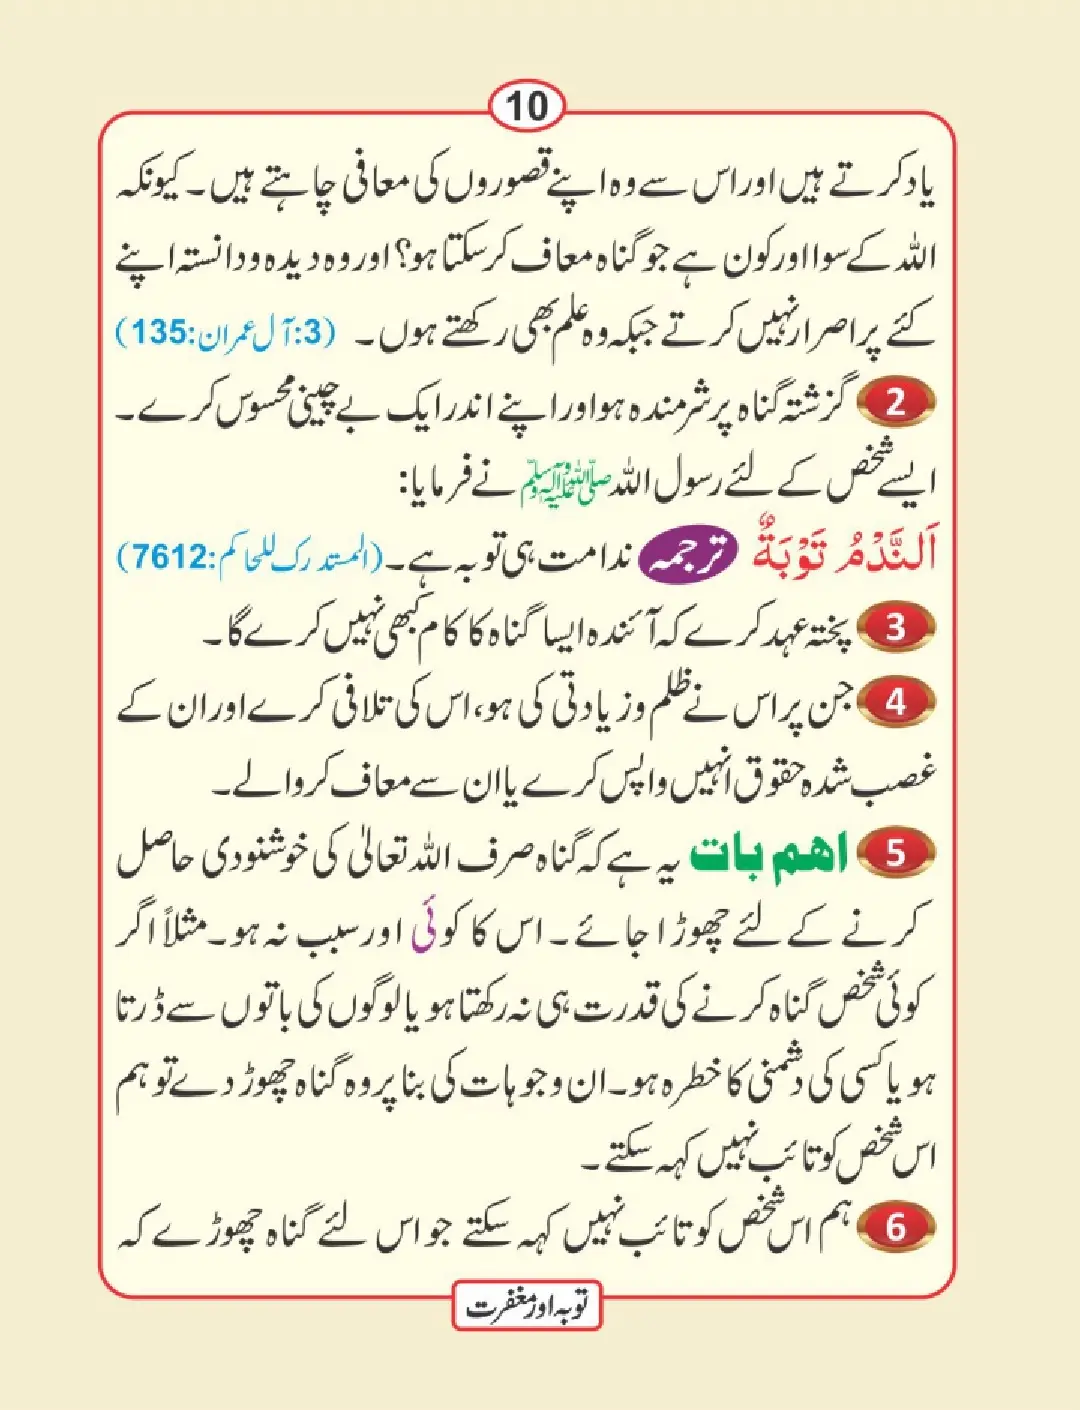 10
یاد کرتے ہیں اور اس سے وہ اپنے قصوروں کی معافی چاہتے ہیں۔ کیونکہ
اللہ کے سوا اور کون ہے جو گناہ معاف کر سکتا ہو؟ اور وہ دیدہ و دانستہ اپنے
کئے پر اصرار نہیں کرتے جبکہ وہ علم بھی رکھتے ہوں۔ (3:آل عمران:135)
2 گزشتہ گناہ پر شرمندہ ہو اور اپنے اندر ایک بے چینی محسوس کرے۔
ایسے شخص کے لئے رسول اللہ صلی اللہ علیہ وآلہ وسلم نے فرمایا:
اَلنَّدْمُ تَوْبَةٌ ترجمہ ندامت ہی توبہ ہے۔ (المستدرک للحاکم:7612)
3 پختہ عہد کرے کہ آئندہ ایسا گناہ کا کام کبھی نہیں کرے گا۔
4 جن پر اس نے ظلم و زیادتی کی ہو، اس کی تلافی کرے اور ان کے
غصب شدہ حقوق انہیں واپس کرے یا ان سے معاف کروالے۔
5 اہم بات یہ ہے کہ گناہ صرف اللہ تعالیٰ کی خوشنودی حاصل
کرنے کے لئے چھوڑا جائے۔ اس کا کوئی اور سبب نہ ہو۔ مثلاً اگر
کوئی شخص گناہ کرنے کی قدرت ہی نہ رکھتا ہو یا لوگوں کی باتوں سے ڈرتا
ہو یا کسی کی دشمنی کا خطرہ ہو۔ ان وجوہات کی بنا پر وہ گناہ چھوڑ دے تو ہم
اس شخص کو تائب نہیں کہہ سکتے۔
6 ہم اس شخص کو تائب نہیں کہہ سکتے جو اس لئے گناہ چھوڑے کہ
توبہ اور مغفرت